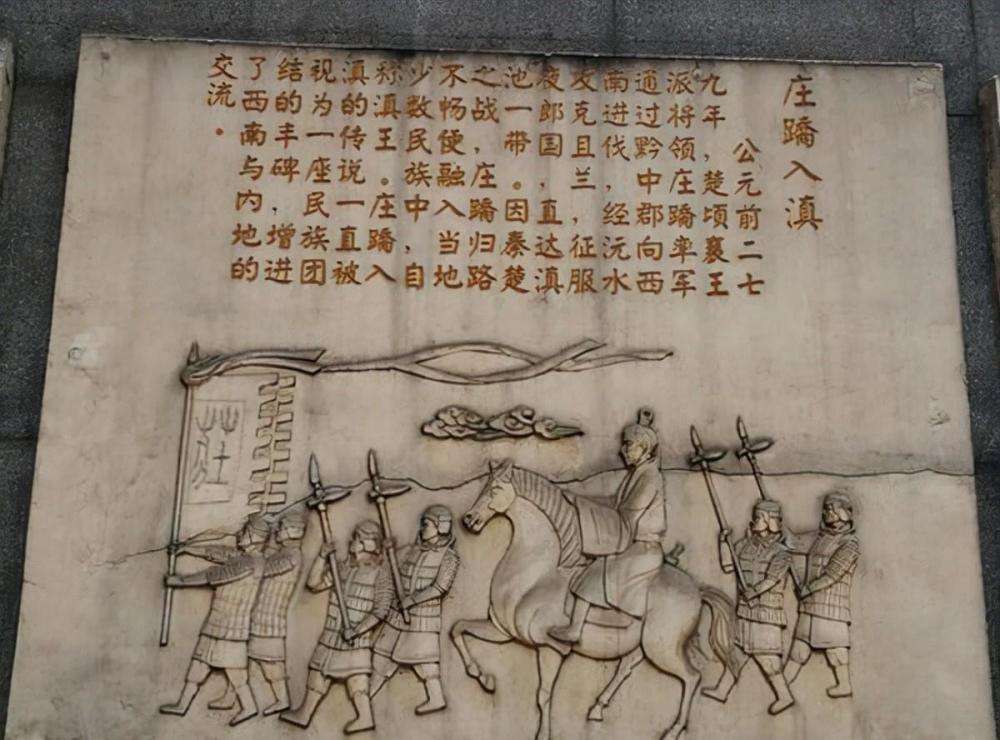 庄蹻入滇
公元前二七
九年，楚顷襄王
派将领庄蹻率军
通过黔中郡向西
南进伐，经沅水
攻克且兰，征服
夜郎国，直达滇
池一带。因秦楚
之战，庄蹻归路
不畅便融入当地
少数民族中，自
称滇王。庄蹻入
滇的传说一直被
视为一座民族团
结的丰碑，增进
了西南与内地的
交流。
莊